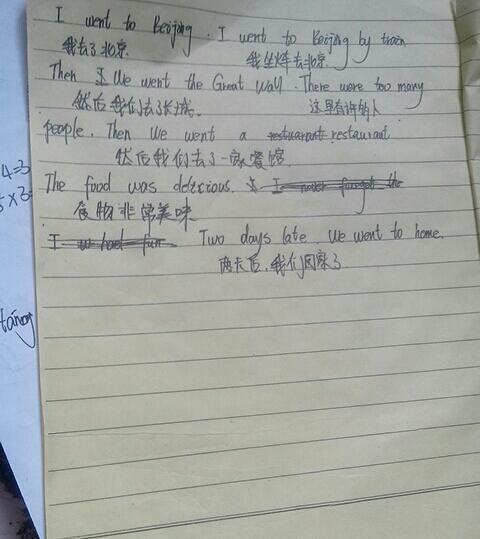 I went to Beijing. I went to Beijing by train
我去了北京. 我坐火车去北京.
Then I We went the Great Wall. There were too many
然后我们去长城. 这里有许多人
people. Then We went a restuarant restaurant
然后我们去了一家餐馆
The food was delicious. I never forget the
食物非常美味
I had fun Two days late. We went to home.
两天后.我们回家了
4=3
×3
tang